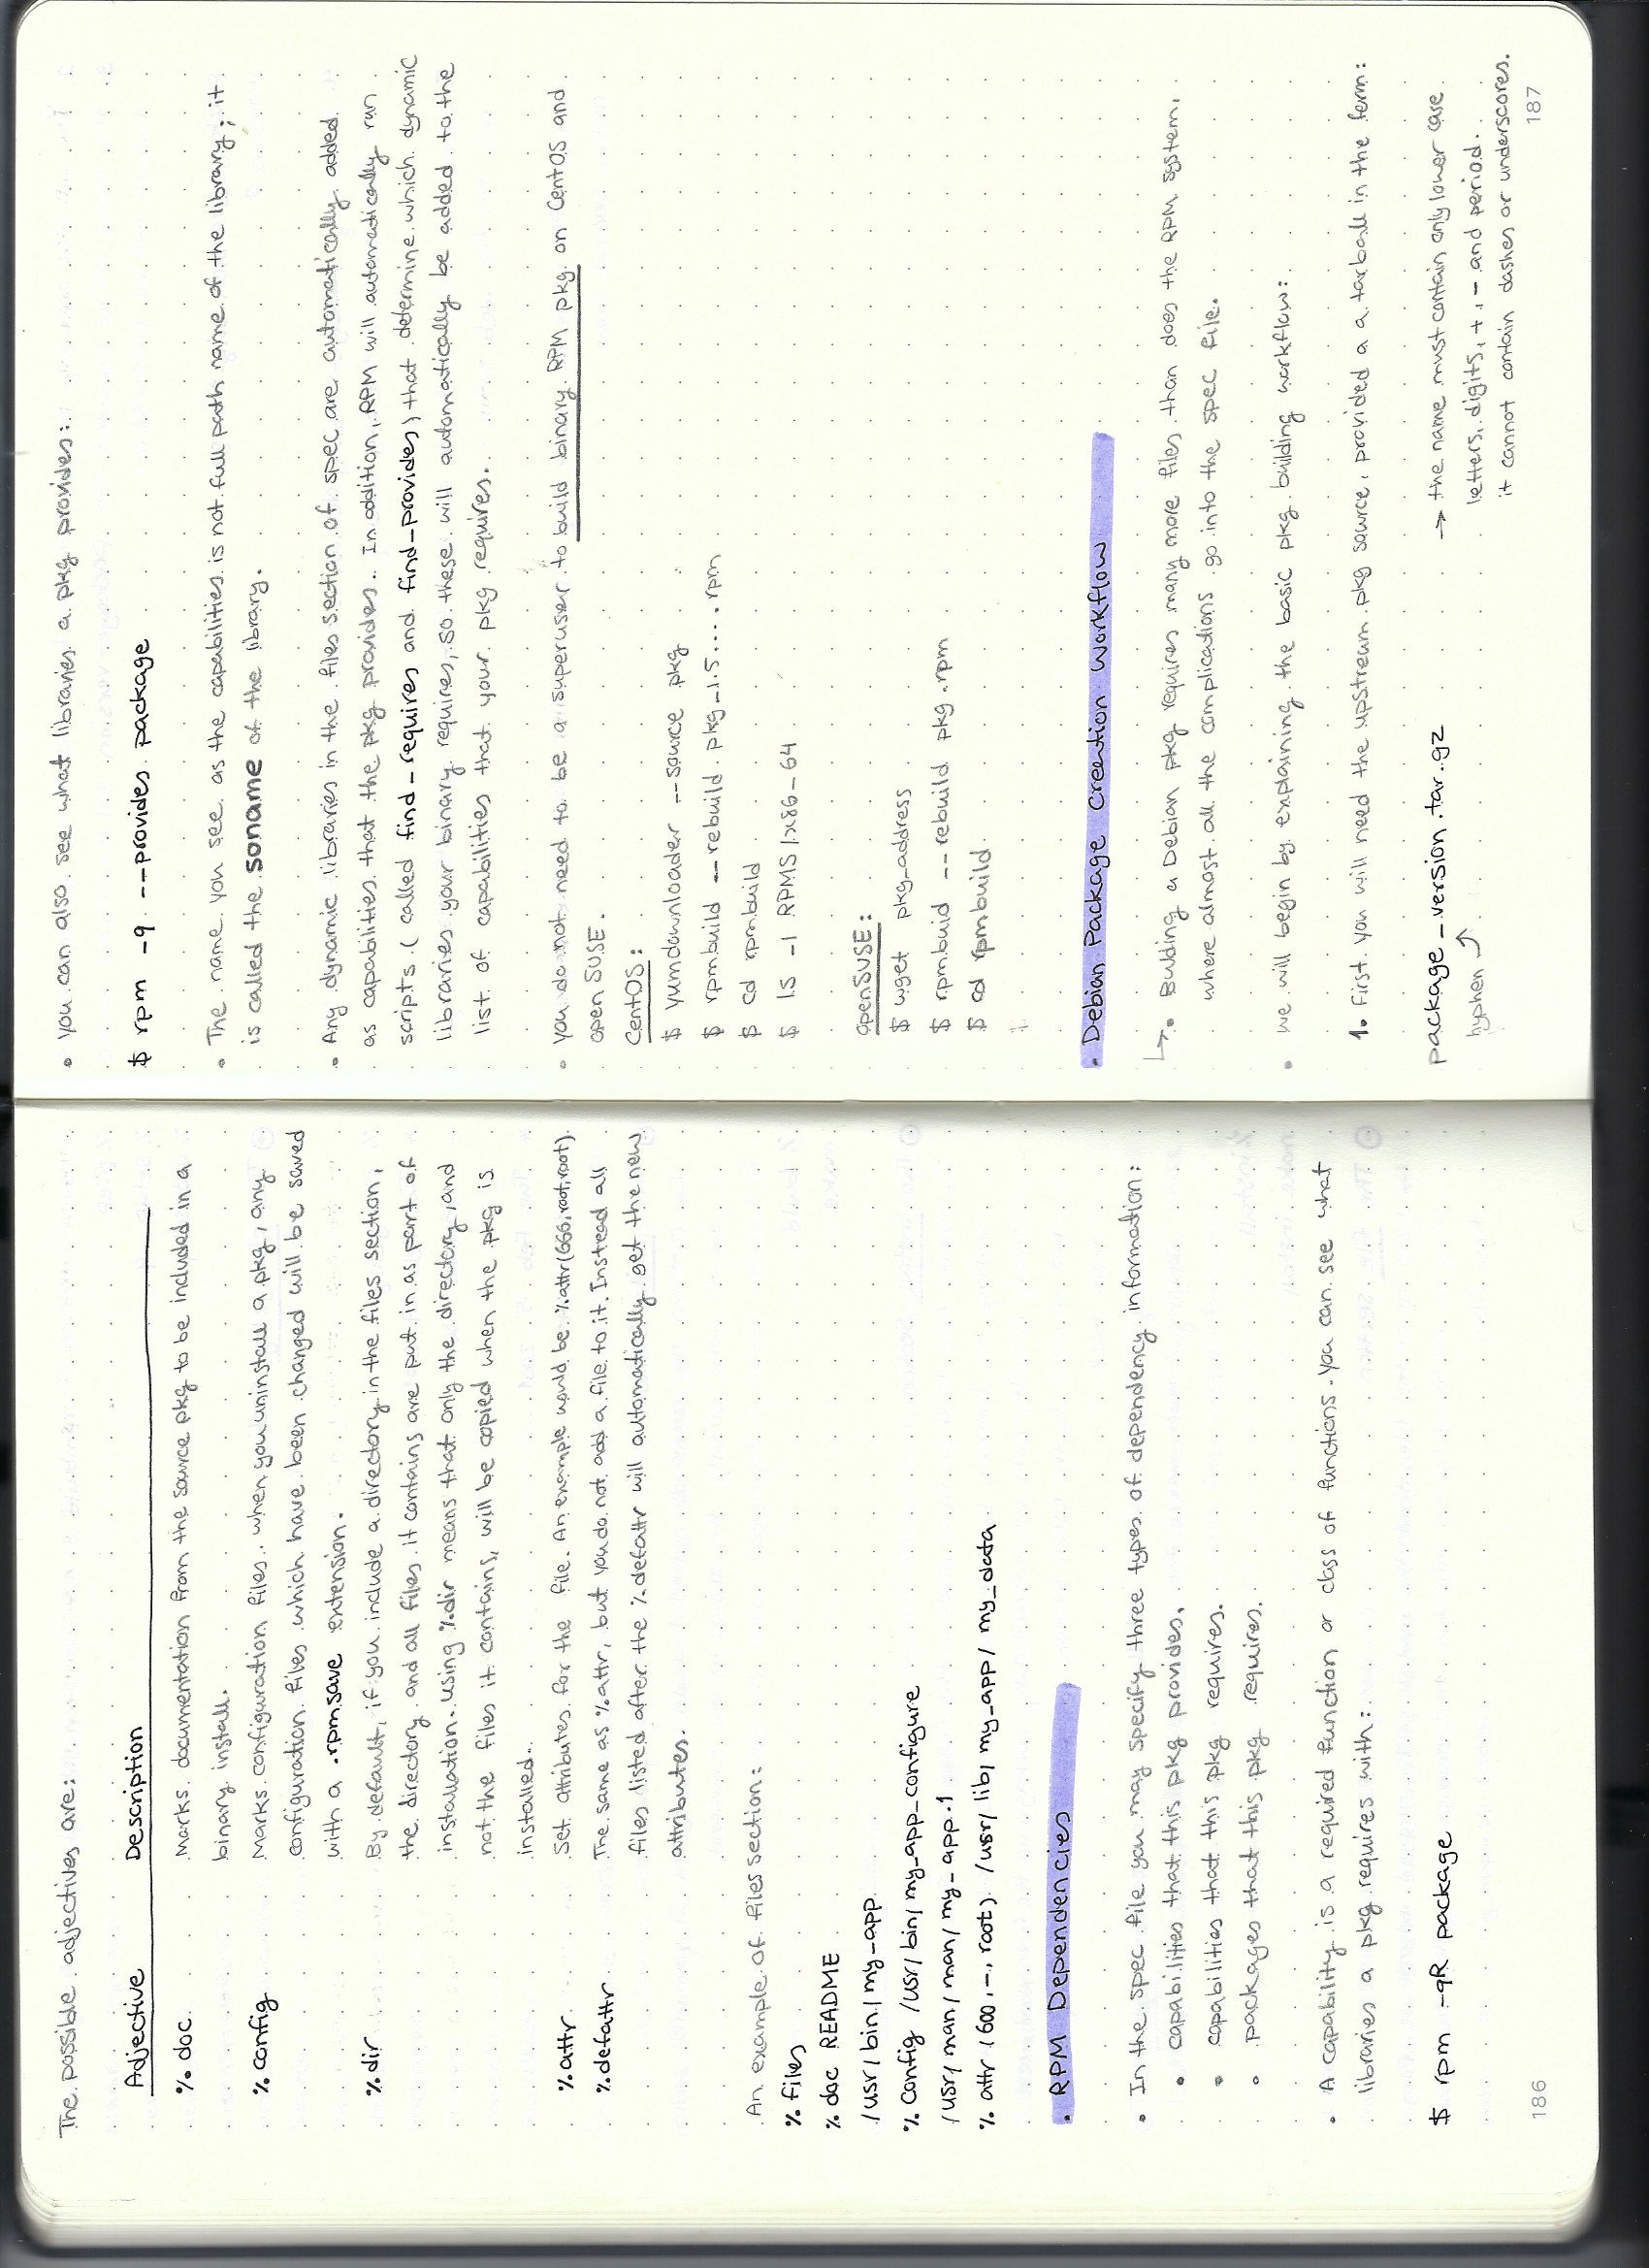 The possible adjectives are:
Adjective Description
% doc Marks documentation from the source pkg to be included in a
binary install.
% config Marks configuration files. when you uninstall a pkg, any
configuration files which have been changed will be saved
with a .rpmsave extension.
% dir By default, if you include a directory in the files section,
the directory and all files it contains are put in as part of
installation. using %dir means that only the directory, and
not the files it contains, will be copied when the pkg is
installed.
% attr Set attributes for the file. An example would be: %attr(666,root,root).
%.defattr The same as %attr, but you do not add a file to it. Instead all
files listed after the %.defattr will automatically get the new
attributes.
An example of files section:
% files
% doc README
/usr/bin/my-app
% config /usr/bin/my-app_configure
/usr/man/man/my-app.1
% attr (600,-,root) /usr/lib/my_app/my_data
• RPM Dependencies
• In the spec file you may specify three types of dependency information:
• capabilities that this pkg provides.
• capabilities that this pkg requires.
• packages that this pkg requires.
• A capability is a required function or class of functions. you can see what
libraries a pkg requires with:
$ rpm -qR package
186
• you can also see what libraries a pkg provides:
$ rpm -q --provides package
• The name you see as the capabilities is not full path name of the library; it
is called the soname of the library.
• Any dynamic libraries in the files section of spec are automatically added
as capabilities that the pkg provides. In addition, RPM will automatically run
scripts (called find-requires and find-provides) that determine which dynamic
libraries your binary requires, so these will automatically be added to the
list of capabilities that your pkg requires.
• you do not need to be a superuser to build binary RPM pkg on CentOS and
open SUSE.
CentOS:
$ yumdownloader --source pkg
$ rpmbuild --rebuild pkg-1.5....rpm
$ cd rpmbuild
$ ls -l RPMS/x86-64
openSUSE:
$ wget pkg-address
$ rpmbuid --rebuild pkg.rpm
$ cd rpmbuild
• Debian Package Creation Workflow
• Building a Debian pkg requires many more files than does the RPM system,
where almost all the complications go into the spec file.
• we will begin by explaining the basic pkg building workflow:
1. first you will need the upstream pkg source, provided a a tarball in the form:
package-version.tar.gz → the name must contain only lower case
hyphen letters, digits, +, - and period.
it cannot contain dashes or underscores.
187